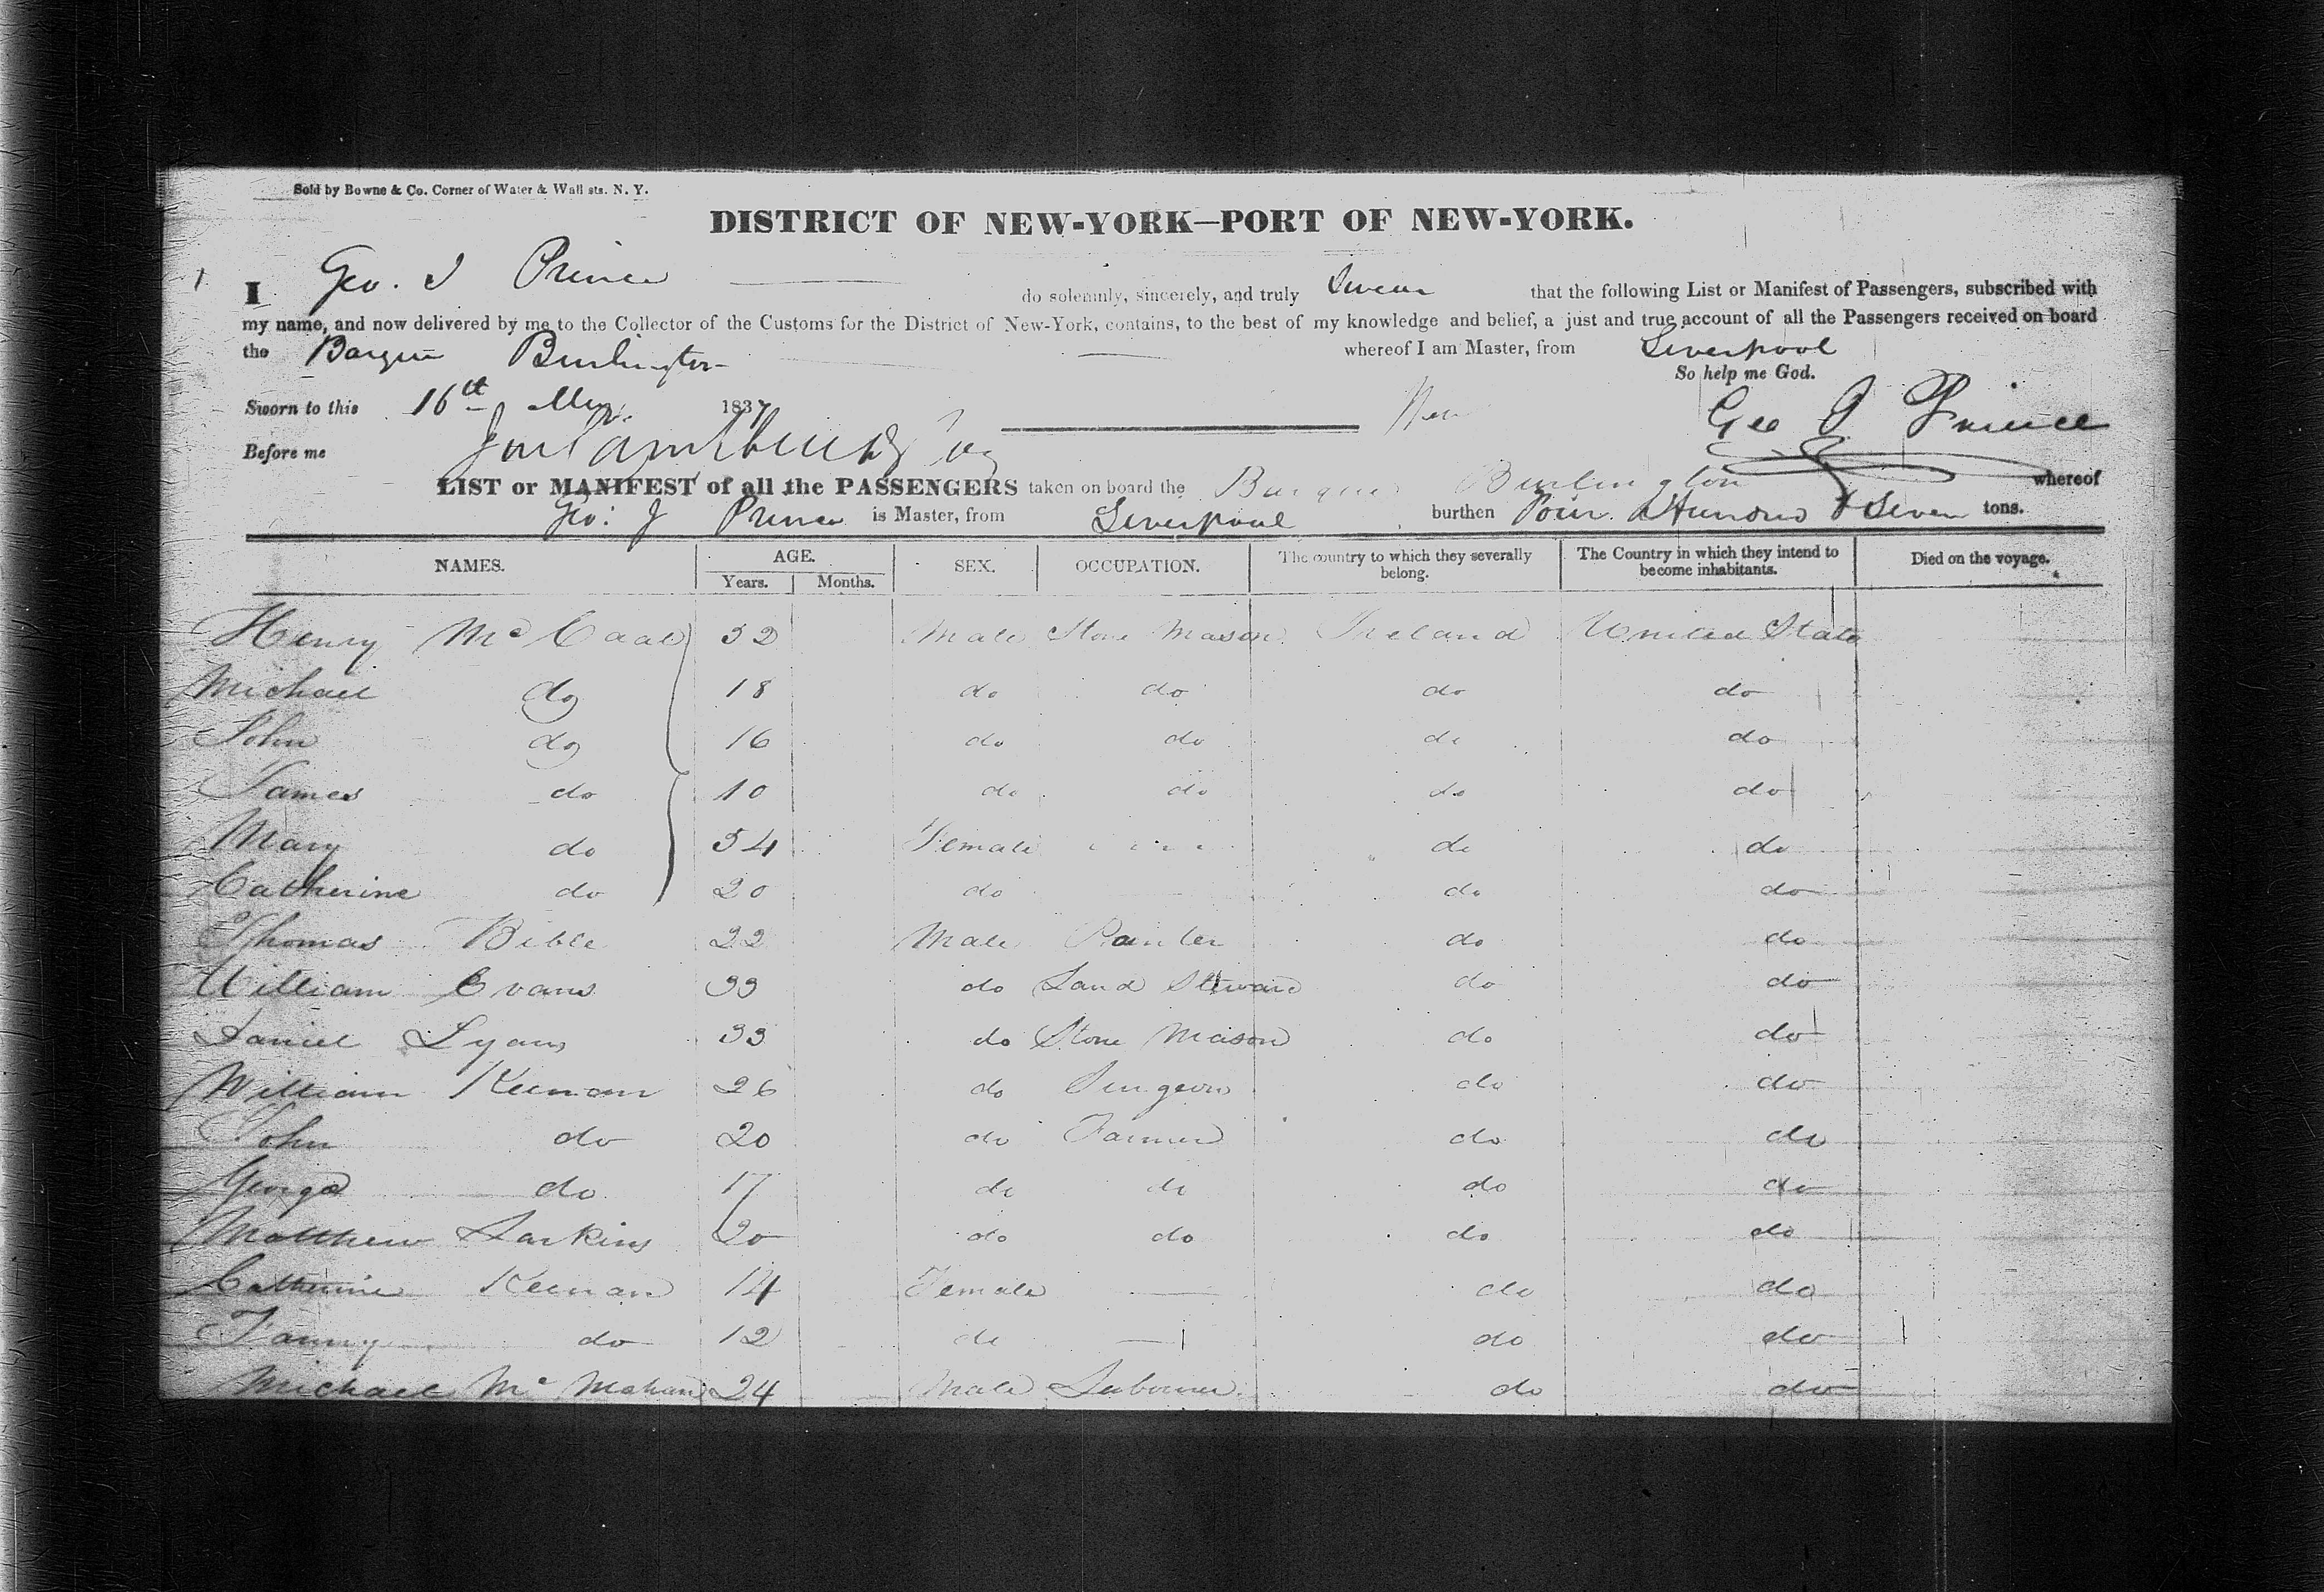 Sold by Bowne & Co. Corner of Water & Wall sts. N. Y.
DISTRICT OF NEW-YORK—PORT OF NEW-YORK.
I Geo. J Prince do solemnly, sincerely, and truly Swear that the following List or Manifest of Passengers, subscribed with
my name, and now delivered by me to the Collector of the Customs for the District of New-York, contains, to the best of my knowledge and belief, a just and true account of all the Passengers received on board
the Barque Burlington whereof I am Master, from Liverpool
So help me God.
Sworn to this 16th May 1837 Geo J Prince
Before me
LIST or MANIFEST of all the PASSENGERS taken on board the Barque Burlington whereof
Geo: J Prince is Master, from Liverpool burthen Four Hundred & Seven tons.
NAMES. AGE. SEX. OCCUPATION. The country to which they severally belong. The Country in which they intend to become inhabitants. Died on the voyage.
Years. Months.
Henry Mc Caal 52 Male Stone Mason Ireland United State
Michael do 18 do do do do
John do 16 do do do do
James do 10 do do do do
Mary do 54 Female do do
Catherine do 20 do do do
Thomas Bible 22 Male Painter do do
William Evans 33 do Land Steward do do
Daniel Lyans 33 do Stone Mason do do
William Keenan 26 do Surgeon do do
John do 20 do Farmer do do
George do 17 do do do do
Matthew Larkins 20 do do do do
Catherine Keenan 14 Female — do do
Fanny do 12 do — do do
Michael Mc Mahan 24 Male Labourer do do